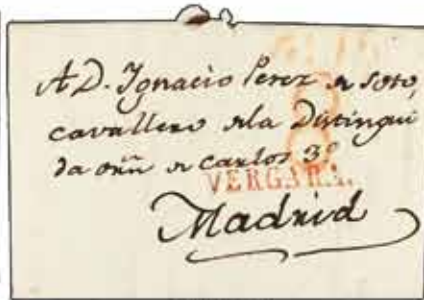 A D. Ygnacio Perez de Soto,
cavallero dela Distingui
da orñ de Carlos 3º
VERGARA.
Madrid